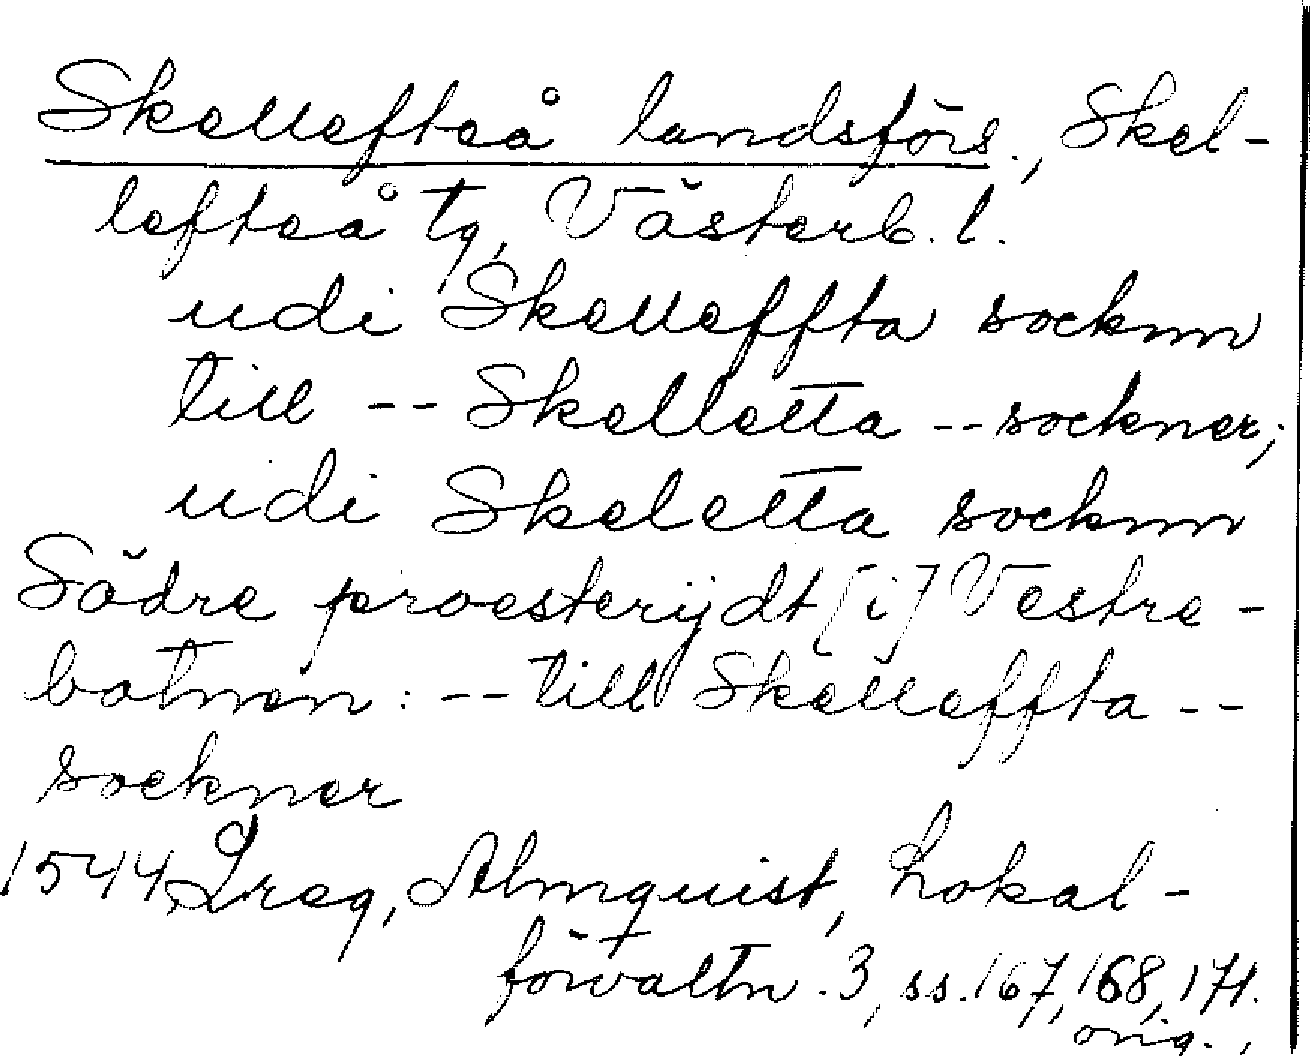 Skellefteå landsförs., Skel-
lefteå tg, Västerb. l.
udi Skelleffta socknn
till -- Skelletta -- sockner;
udi Skeletta socknn
Södre proesterijdt [i] Vestre-
botnen: -- till Skelleffta --
sockner
1544 Lreg, Almquist, Lokal-
förvaltn. 3, ss. 167, 168, 171.
orig.,